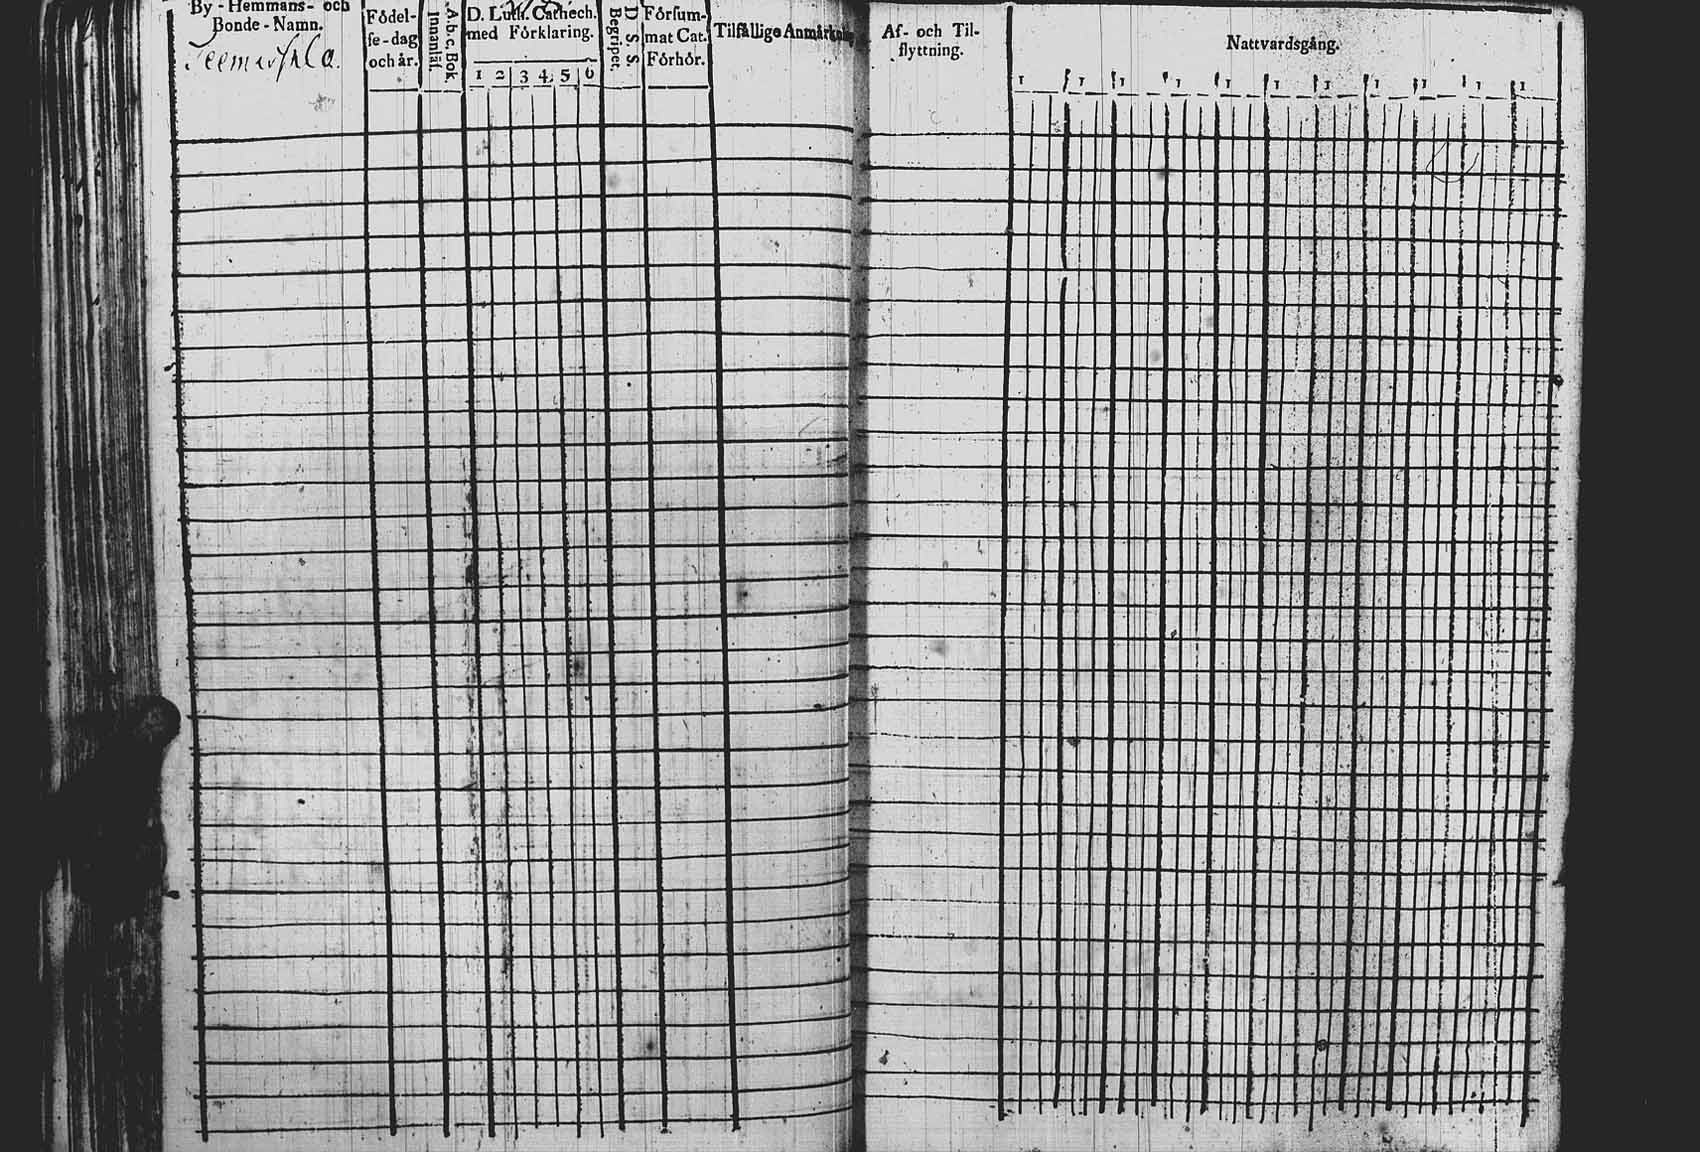 By - Hemmans- och
Bonde - Namn.
Födel-
se-dag
och år.
A.b.c. Bok.
Innanläs.
D. Luth. Cathech.
med Förklaring.
1 2 3 4 5 6
D. S. S.
Begriper.
Försum-
mat Cat.
Förhör.
Tilfällige Anmärkning
Af- och Til-
flyttning.
Nattvardsgång.
1 1 1 1 1 1 1 1 1 1 1